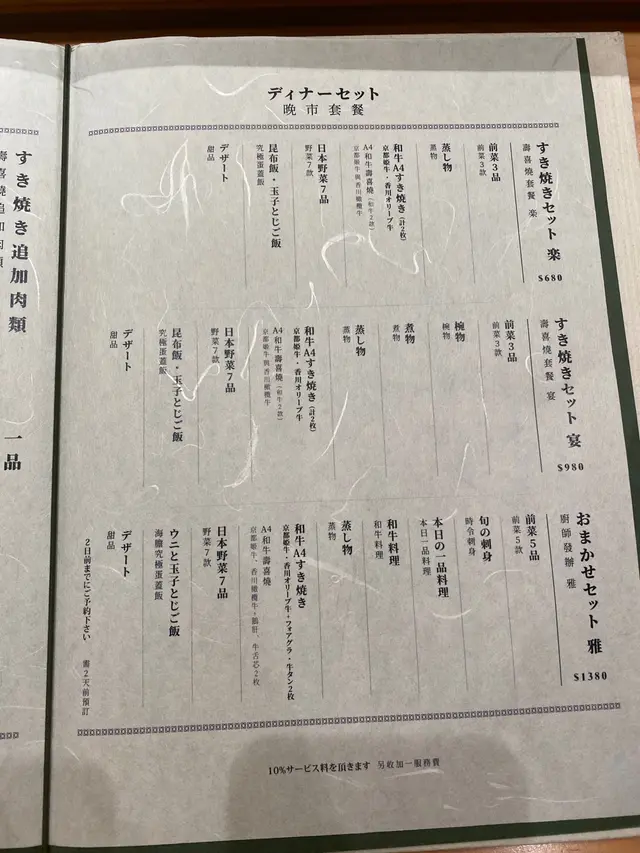 ディナーセット
晩市套餐
すき焼きセット 楽
壽喜燒套餐 楽
$680
前菜3品
前菜3款
蒸し物
蒸物
和牛A4すき焼き(計2枚)
京都姫牛・香川オリーブ牛
A4和牛壽喜燒(和牛2款)
京都姬牛與香川橄欖牛
日本野菜7品
野菜7款
昆布飯・玉子とじご飯
究極蛋蓋飯
デザート
甜品
すき焼きセット 宴
壽喜燒套餐 宴
$980
前菜3品
前菜3款
椀物
椀物
煮物
煮物
蒸し物
蒸物
和牛A4すき焼き(計2枚)
京都姫牛・香川オリーブ牛
A4和牛壽喜燒(和牛2款)
京都姬牛與香川橄欖牛
日本野菜7品
野菜7款
昆布飯・玉子とじご飯
究極蛋蓋飯
デザート
甜品
おまかせセット 雅
廚師發辦 雅
$1380
前菜5品
前菜5款
旬の刺身
時令刺身
本日の一品料理
本日一品料理
和牛料理
和牛料理
蒸し物
蒸物
和牛A4すき焼き
京都姫牛・香川オリーブ牛・フォアグラ・牛タン2枚
A4和牛壽喜燒
京都姬牛、香川橄欖牛、鵝肝、牛舌芯2枚
日本野菜7品
野菜7款
ウニと玉子とじご飯
海膽究極蛋蓋飯
デザート
甜品
2日前までにご予約下さい 需2天前預訂
10%サービス料を頂きます 另收加一服務費
すき焼き追加肉類
壽喜燒追加肉類
一品